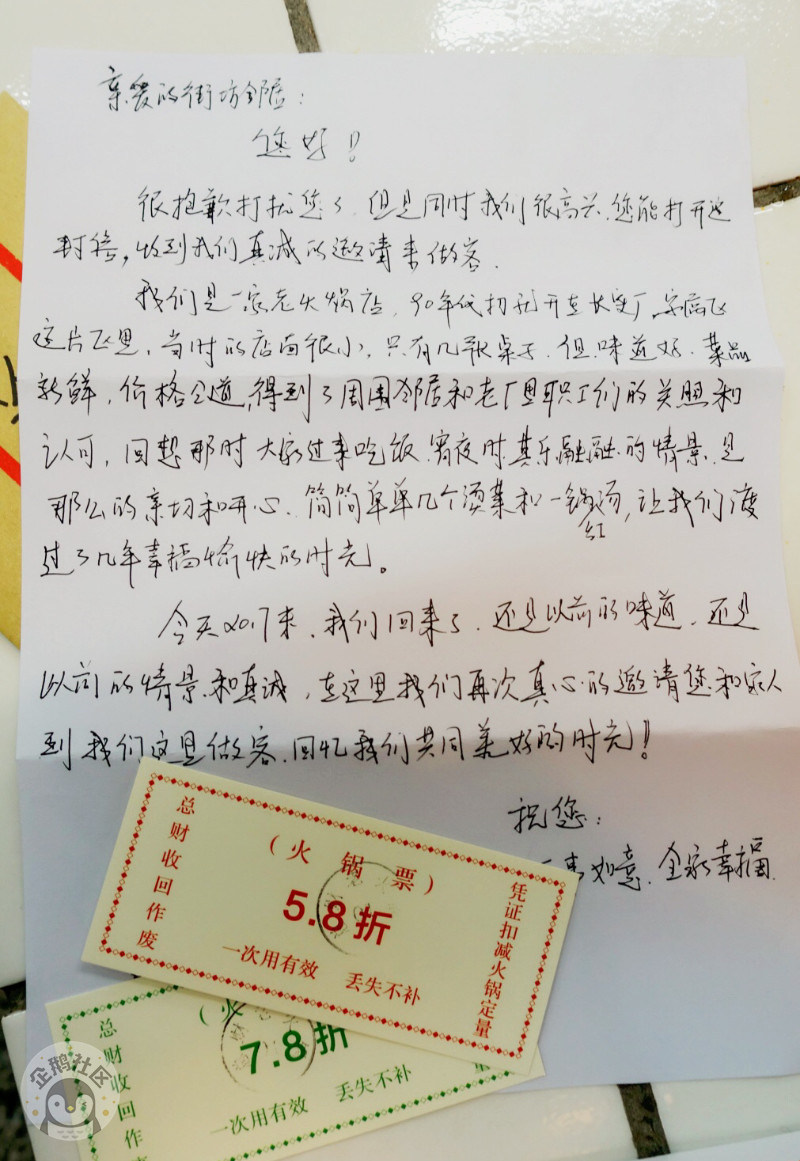 亲爱的街坊邻居：
您好！
很抱歉打扰您了，但是同时我们很高兴，您能打开这
封信，收到我们真诚的邀请来做客．
我们是一家老火锅店，90年代初就开在长安厂、
这片区里，当时的店面很小，只有几张桌子，但味道好、菜品
新鲜，价格公道，得到了周围邻居和老厂里职工们的关照和
认可，回想那时大家过来吃饭、宵夜时其乐融融的情景，是
那么的亲切和开心、简简单单几个烫菜和一锅红汤，让我们渡
过了几年幸福愉快的时光。
今天2017来，我们回来了．还是以前的味道，还是
以前的情景和真诚，在这里我们再次真心的邀请您和家人
到我们这里做客．回忆我们共同美好的时光！
祝您：
事如意．全家幸福．
总财收回作废
（火锅票）
5.8折
一次用有效 丢失不补
凭证扣减火锅定量
总财收回作废
（火
7.8折
一次用有效 丢失不补
企鹅社区